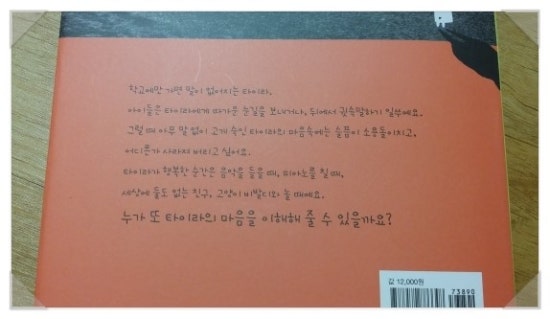 학교에만 가면 말이 없어지는 타이라.
아이들은 타이라에게 따가운 눈길을 보내거나, 뒤에서 쉽게말하기 일쑤예요.
그럴 때 아무 말 없이 고개 숙인 타이라의 마음속에는 슬픔이 소용돌이치고,
어디론가 사라져 버리고 싶어요.
타이라가 행복한 순간은 음악을 들을 때, 피아노를 칠 때,
세상에 둘도 없는 친구, 고양이 비발디와 놀 때예요.
누가 또 타이라의 마음을 이해해 줄 수 있을까요?
값 12,000원
73890